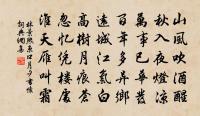 山風吹酒醒
秋入夜燈涼
萬事已華髮
百年多異鄉
遠城江氣白
高樹月痕蒼
忽憶憑樓處
淮天雁叫霜
林景熙京口月夕書懷
詞典網集